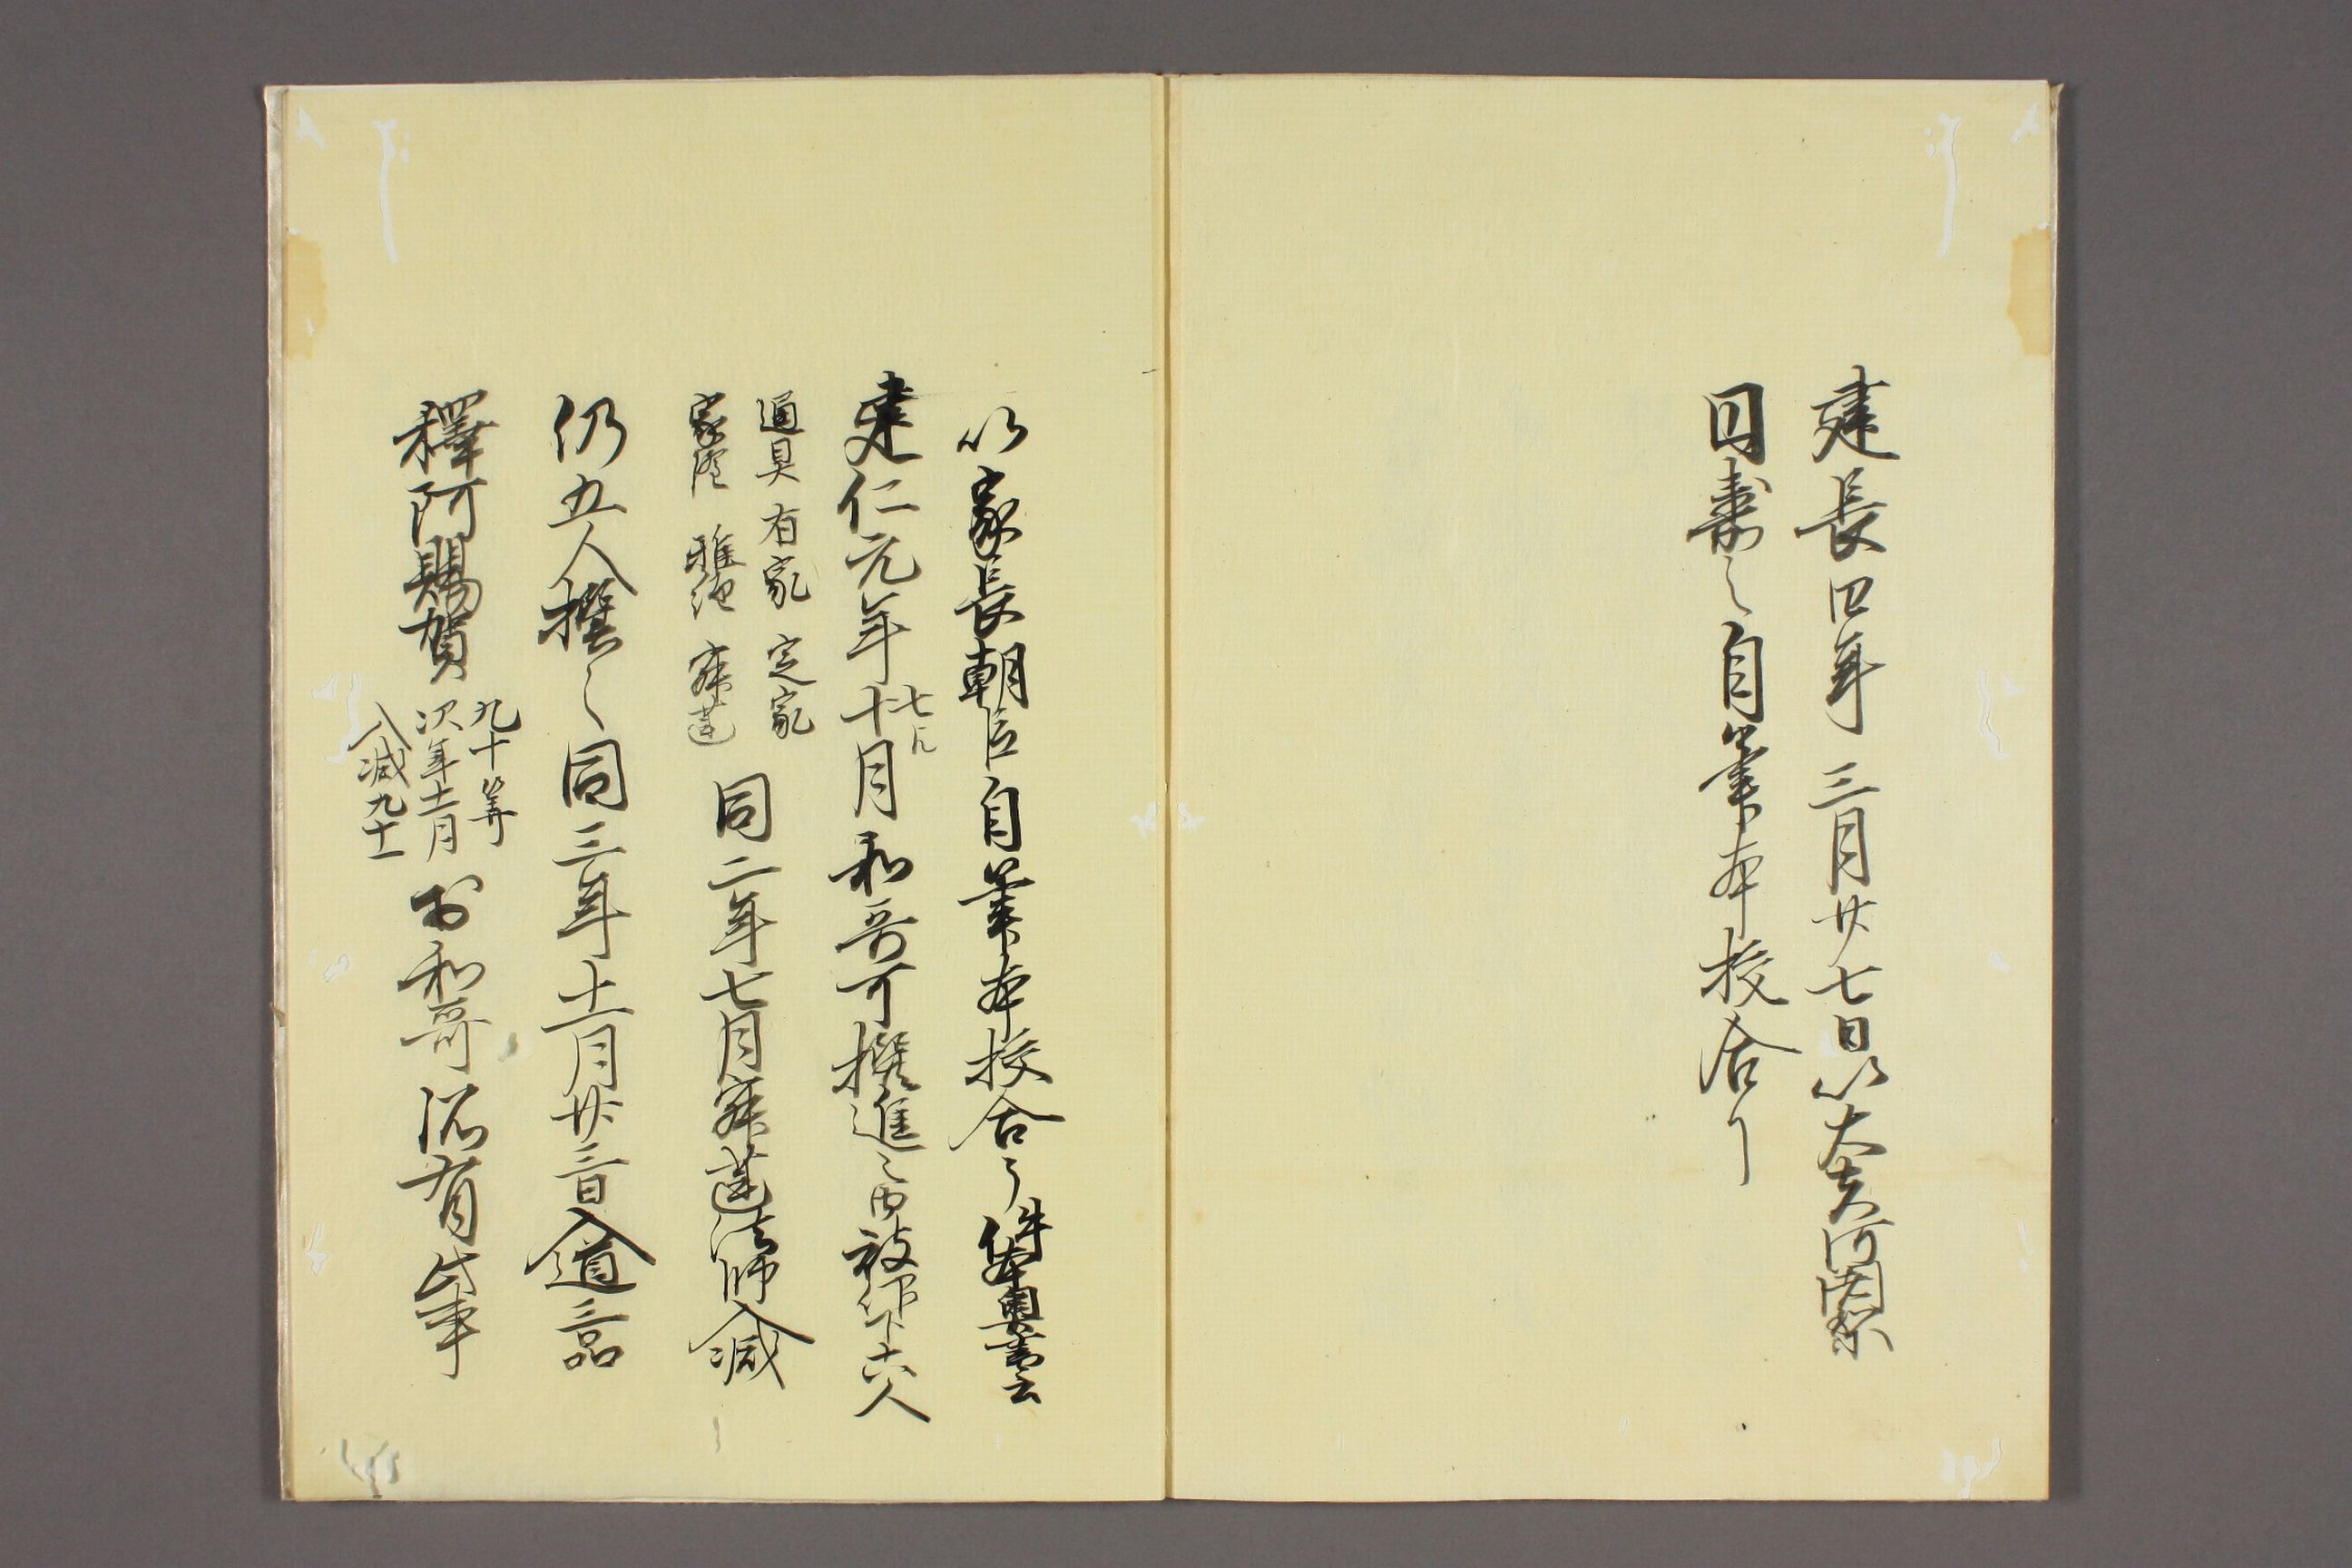 建長四年三月廿七日以大夫阿闍梨
円壽之自筆本校合了
以家長朝臣自筆本校合了件本奥書云
建仁元年十一月和哥可撰進之由被仰下六人
通具 有家 定家
家隆 雅経 寂蓮
同二年七月寂蓮法師入滅
仍五人撰之同三年十一月廿三日入道三品
釋阿賜賀
九十算
次年十一月
入滅九十一
於和哥所有此事